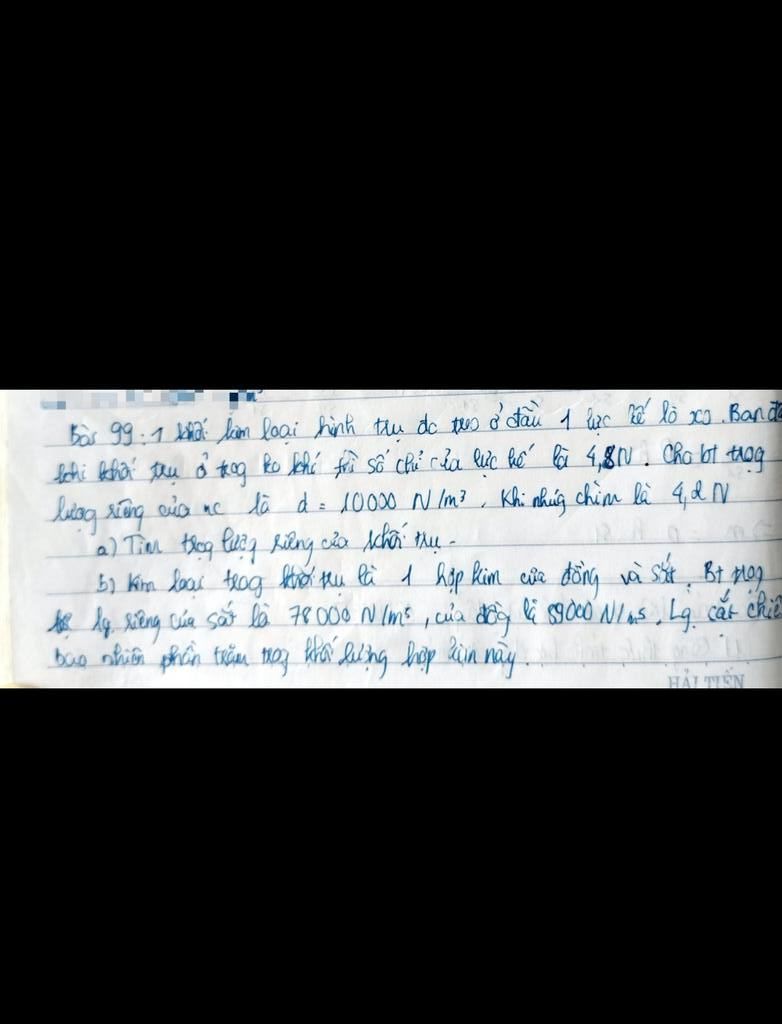 Bài 99: 1 khối kim loại hình trụ dc treo ở đầu 1 lực kế lò xo. Ban đ
khi khối trụ ở trog ko khí thì số chỉ của lực kế là 4,8N. Cho bt trog
lượg riêng của nc là d = 10000 N/m³. Khi nhúg chìm là 4,2N
a) Tính trog lượg riêng của khối trụ.
b) Kim loại trog khối trụ là 1 hợp kim của đồng và sắt. Bt trog
lg riêng của sắt là 78000 N/m³, của đồg là 89000 N/m³. Lg sắt chiế
bao nhiên phần trăm trog khối lượng hợp kim này.
HẢI TIẾN